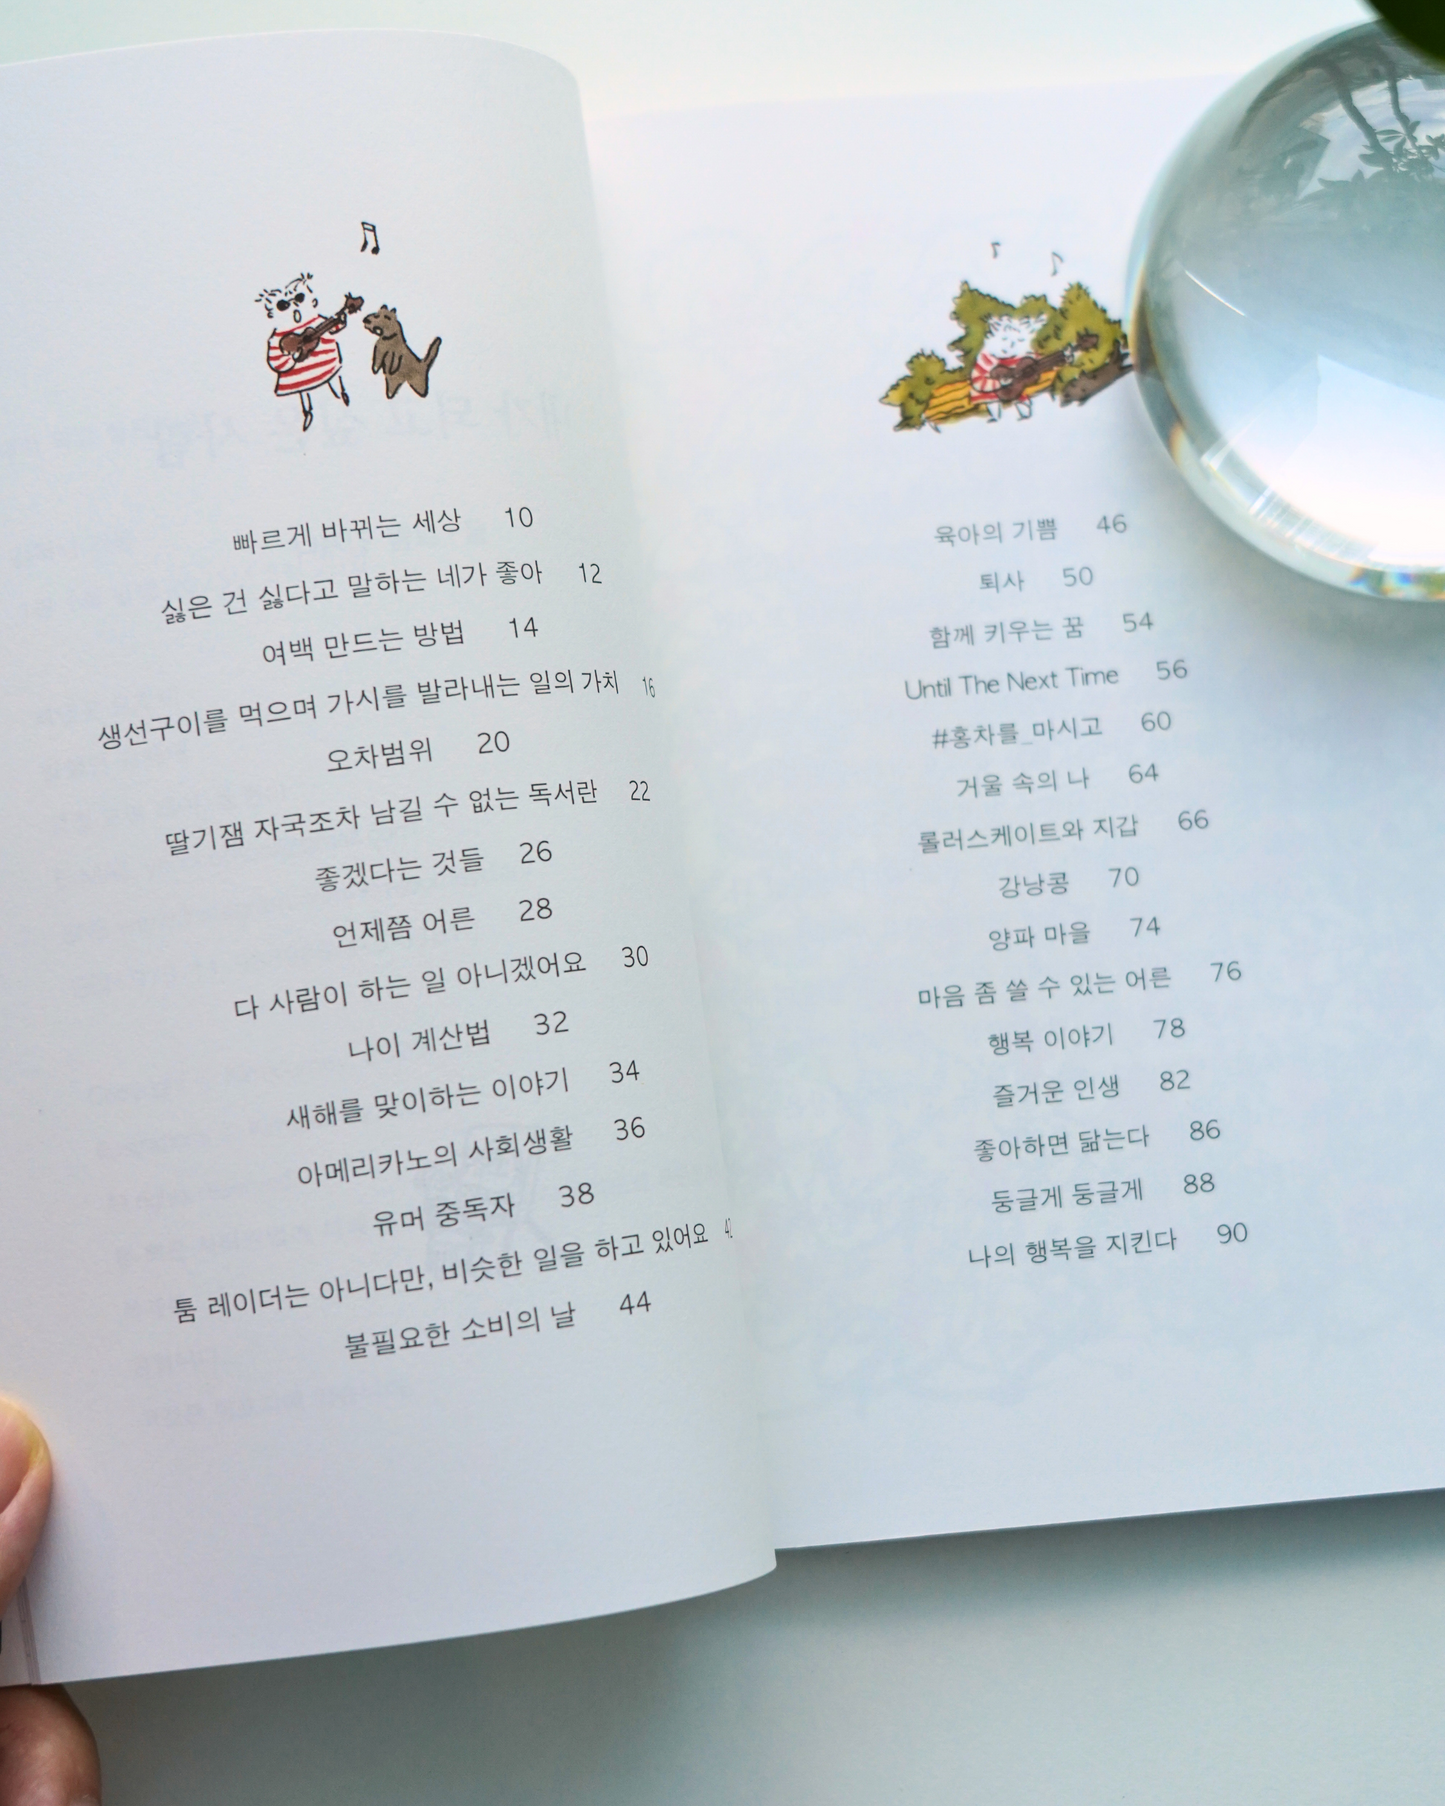 빠르게 바뀌는 세상 10
싫은 건 싫다고 말하는 네가 좋아 12
여백 만드는 방법 14
생선구이를 먹으며 가시를 발라내는 일의 가치 16
오차범위 20
딸기잼 자국조차 남길 수 없는 독서란 22
좋겠다는 것들 26
언제쯤 어른 28
다 사람이 하는 일 아니겠어요 30
나이 계산법 32
새해를 맞이하는 이야기 34
아메리카노의 사회생활 36
유머 중독자 38
툼 레이더는 아니다만, 비슷한 일을 하고 있어요
불필요한 소비의 날 44
육아의 기쁨 46
퇴사 50
함께 키우는 꿈 54
Until The Next Time 56
#홍차를_마시고 60
거울 속의 나 64
롤러스케이트와 지갑 66
강낭콩 70
양파 마을 74
마음 좀 쓸 수 있는 어른 76
행복 이야기 78
즐거운 인생 82
좋아하면 닮는다 86
둥글게 둥글게 88
나의 행복을 지킨다 90